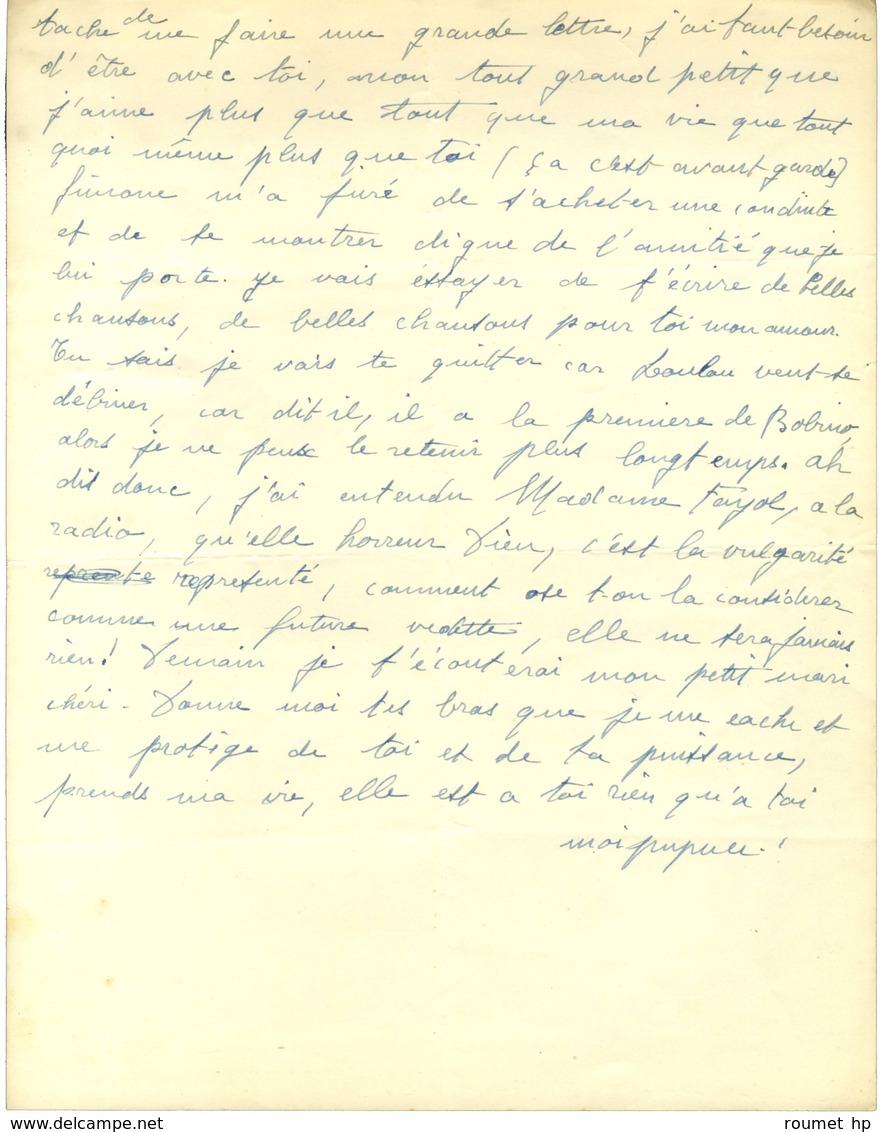 tache de me faire une grande lettre, j'ai tant besoin
d'être avec toi, mon tout grand petit que
j'aime plus que tout que ma vie que tout
quoi même plus que toi (ça c'est avant garde)
Simone m'a juré de s'acheter une conduite
et de se montrer digne de l'amitié que je
lui porte. je vais éssayer de t'écrire de belles
chansons, de belles chansons pour toi mon amour.
Tu sais je vais te quitter car Loulou veut se
débiner, car dit il, il a la premiere de Bobino,
alors je ne peux le retenir plus longtemps. ah
dis donc, j'ai entendu Madame Fayol, a la
radio, qu'elle horreur Dieu, c'est la vulgarité
representé, comment ose t-on la considérer
comme une future vedette, elle ne sera jamais
rien! Demain je t'écouterai mon petit mari
chéri. Donne moi tes bras que je me cache et
me protège de toi et de ta puissance,
prends ma vie, elle est a toi rien qu'a toi
moi
roumet hp